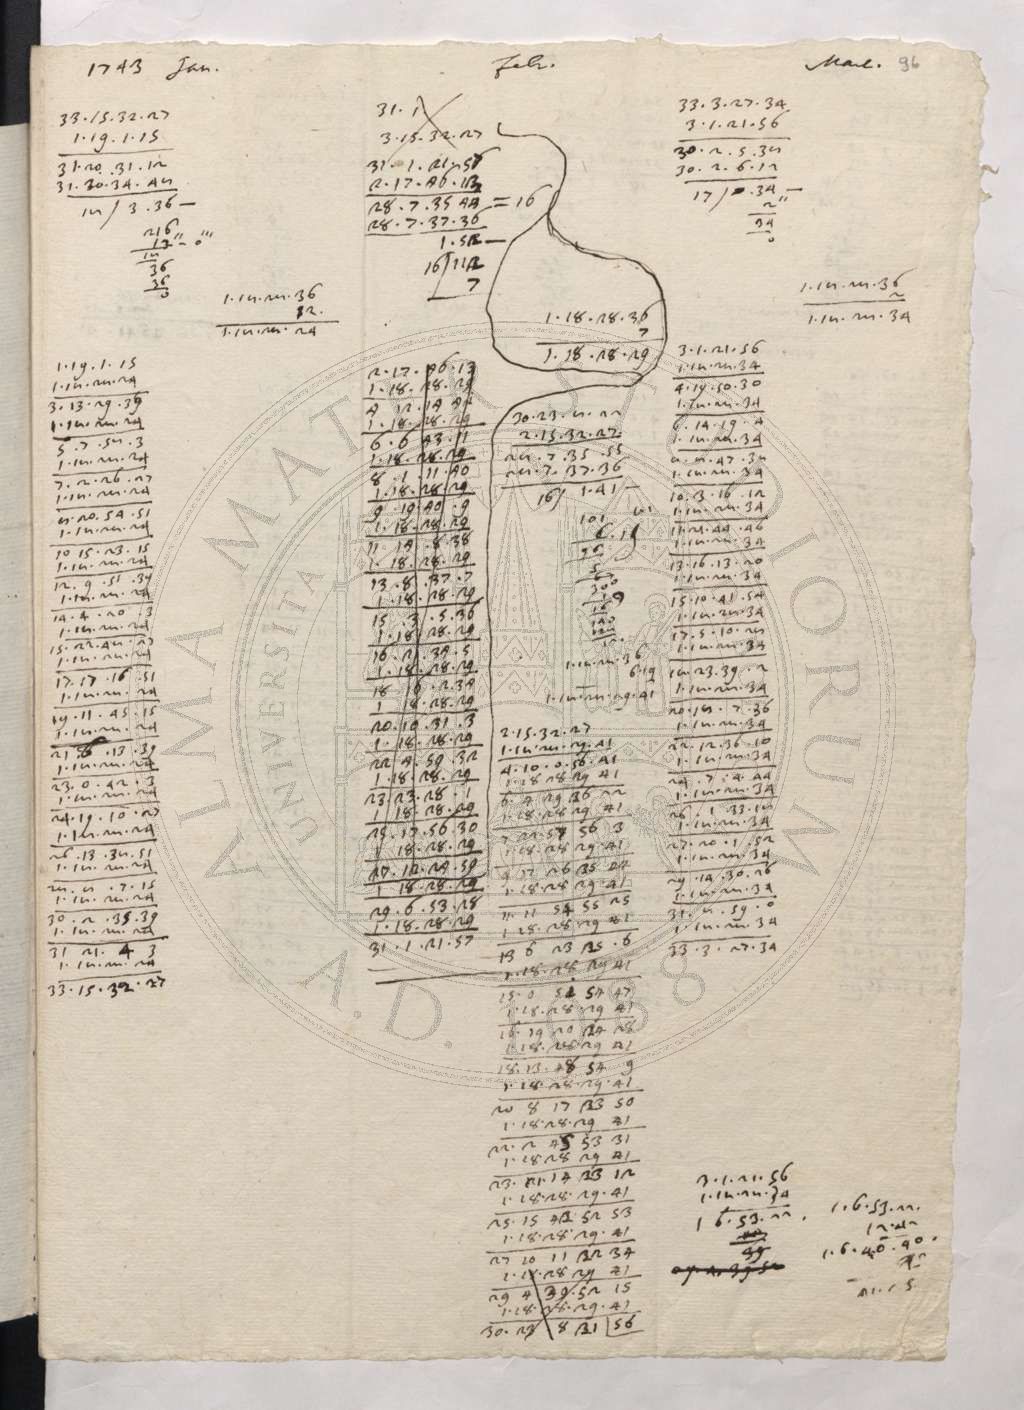 1743 Jan.
33.15.32.27
1.19.1.15
31.20.31.12
31.20.34.48
18/3.36—
216
12"—0'''
18
36
36
0
1.18.28.36
12.
1.18.28.24
1.19.1.15
1.18.28.24
3.13.29.39
1.18.28.24
5.7.58.3
1.18.28.24
7.2.26.27
1.18.28.24
8.20.54.51
1.18.28.24
10.15.23.15
1.18.28.24
12.9.51.39
1.18.28.24
14.4.20.3
1.18.28.24
15.22.48.27
1.18.28.24
17.17.16.51
1.18.28.24
19.11.45.15
1.18.28.24
21.6.13.39
1.18.28.24
23.0.42.3
1.18.28.24
24.19.10.27
1.18.28.24
26.13.38.51
1.18.28.24
28.8.7.15
1.18.28.24
30.2.35.39
1.18.28.24
31 21.4 3
1.18.28.24
33.15.32.27
Feb.
31.1
3.15.32.27
31.1.21.57
2.17.46.13
28.7.35 44=16
28.7.37.36
1.52—
16/112
7
1.18.28.36
7
1.18.28.29
2.17.46.13
1.18.28.29
4 12.14 42
1.18.28.29
6.6 43.11
1.18.28.29
8.1.11.40
1.18.28.29
9.19.40.9
1.18.28.29
11.14.8.38
1.18.28.29
13.8.37.7
1.18.28.29
15.3.5.36
1.18.28.29
16.21.34.5
1.18.28.29
18.16.2.34
1.18.28.29
20.10.31.3
1.18.28.29
22 4.59.32
1.18.28.29
23.23.28.1
1.18.28.29
25.17.56.30
1.18.28.29
27.12.24.59
1.18.28.29
29.6.53.28
1.18.28.29
31.1.21.57
30.23.8.22
2.15.32.27
28.7.35.55
28.7.37.36
16/1.41—
101
6.19
96
5
300
19
16
140
1.18.28.36
6.19
1.18.28.29.41
2.15.32.27
1.18.28.29.41
4.10.0.56.41
1.18 28 29 41
6.4 29 26 22
1.18.28.29 41
7 22.57 56 3
1.18.28.29.41
9 17 26 25 44
1.18.28 29.41
11 11 54 55 25
1.18.28.29 41
13 6 23 25.6
1.18.28 29 41
15.0 51 54 47
1.18.28.29 41
16.19 20 24 28
1.18.28.29 41
18.13.48 54 9
1.18.28.29.41
20 8 17 23 50
1.18.28.29 41
22.2 45 53 31
1.18 28 29 41
23.21.14 23 12
1.18.28.29.41
25.15 42 52 53
1.18.28.29.41
27 10 11 22 34
1.18 28 29 41
29 4 39.52 15
1.18.28.29.41
30.23 8 21 56
Mart. 96
33.3.27.34
3.1.21.56
30.2.5.38
30.2.6.12
17/0.34—
2"
34
0
1.18.28.36
2
1.18.28.34
3.1.21.56
1.18.28.34
4.19.50.30
1.18.28.34
6.14.19.4
1.18.28.34
8.8.47.38
1.18.28.34
10.3.16.12
1.18.28.34
11.21.44.46
1.18.28.34
13.16.13.20
1.18.28.34
15.10.41.54
1.18.28.34
17.5.10.28
1.18.28.34
18.23.39.2
1.18.28.34
20.18.7.36
1.18.28.34
22.12.36.10
1.18.28.34
24.7.4.44
1.18.28.34
26.1 33.18
1.18.28.34
27.20.1.52
1.18.28.34
29.14.30.26
1.18.28.34
31.8.59.0
1.18.28.34
33.3.27.34
3.1.21.56
1.18.28.34
1 6.53.22.
1.6.53.22.
12.42
1.6.40.40.
ALMA MATER STUDIORUM
UNIVERSITA
A.D. 1088